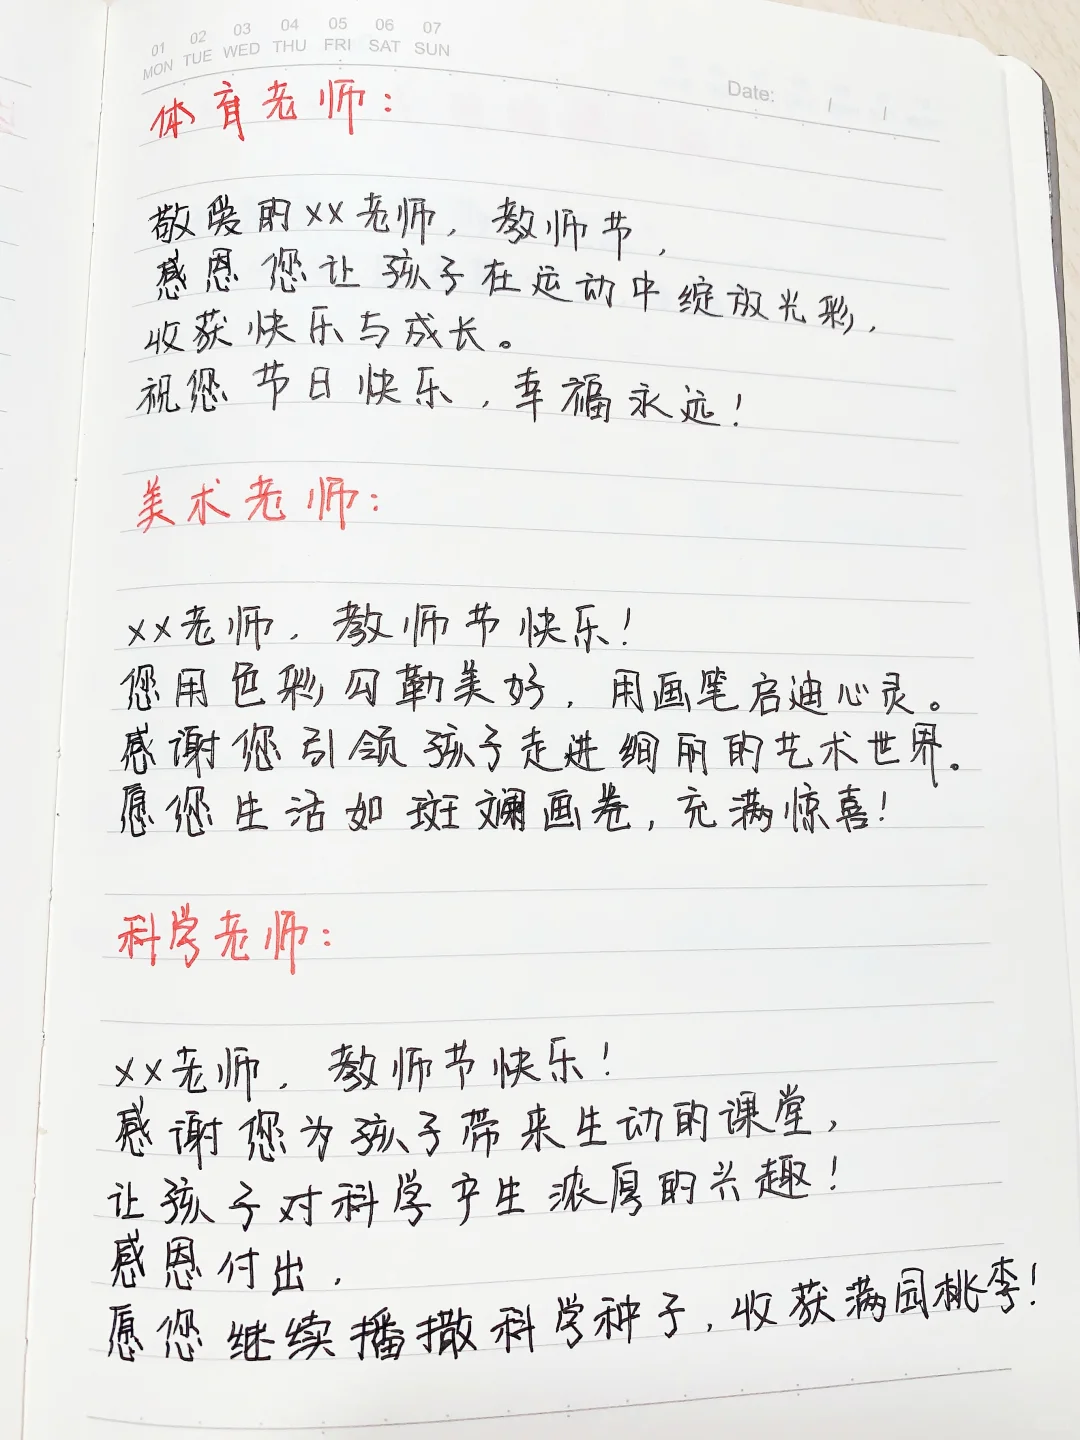 01 02 03 04 05 06 07
MON TUE WED THU FRI SAT SUN
Date:
体育老师：
敬爱的××老师，教师节，
感恩您让孩子在运动中绽放光彩，
收获快乐与成长。
祝您节日快乐，幸福永远！
美术老师：
××老师，教师节快乐！
您用色彩勾勒美好，用画笔启迪心灵。
感谢您引领孩子走进绚丽的艺术世界。
愿您生活如斑斓画卷，充满惊喜！
科学老师：
××老师，教师节快乐！
感谢您为孩子带来生动的课堂，
让孩子对科学产生浓厚的兴趣！
感恩付出，
愿您继续播撒科学种子，收获满园桃李！